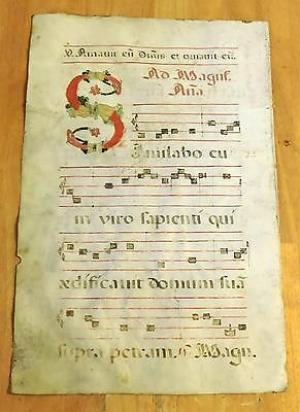 V. Amauit eū Dn̄s et ornauit eū.
Ad Magnif.
Aña
Similabo eu
m viro sapienti qui
ædificauit domum suā
supra petram. ps Magn.